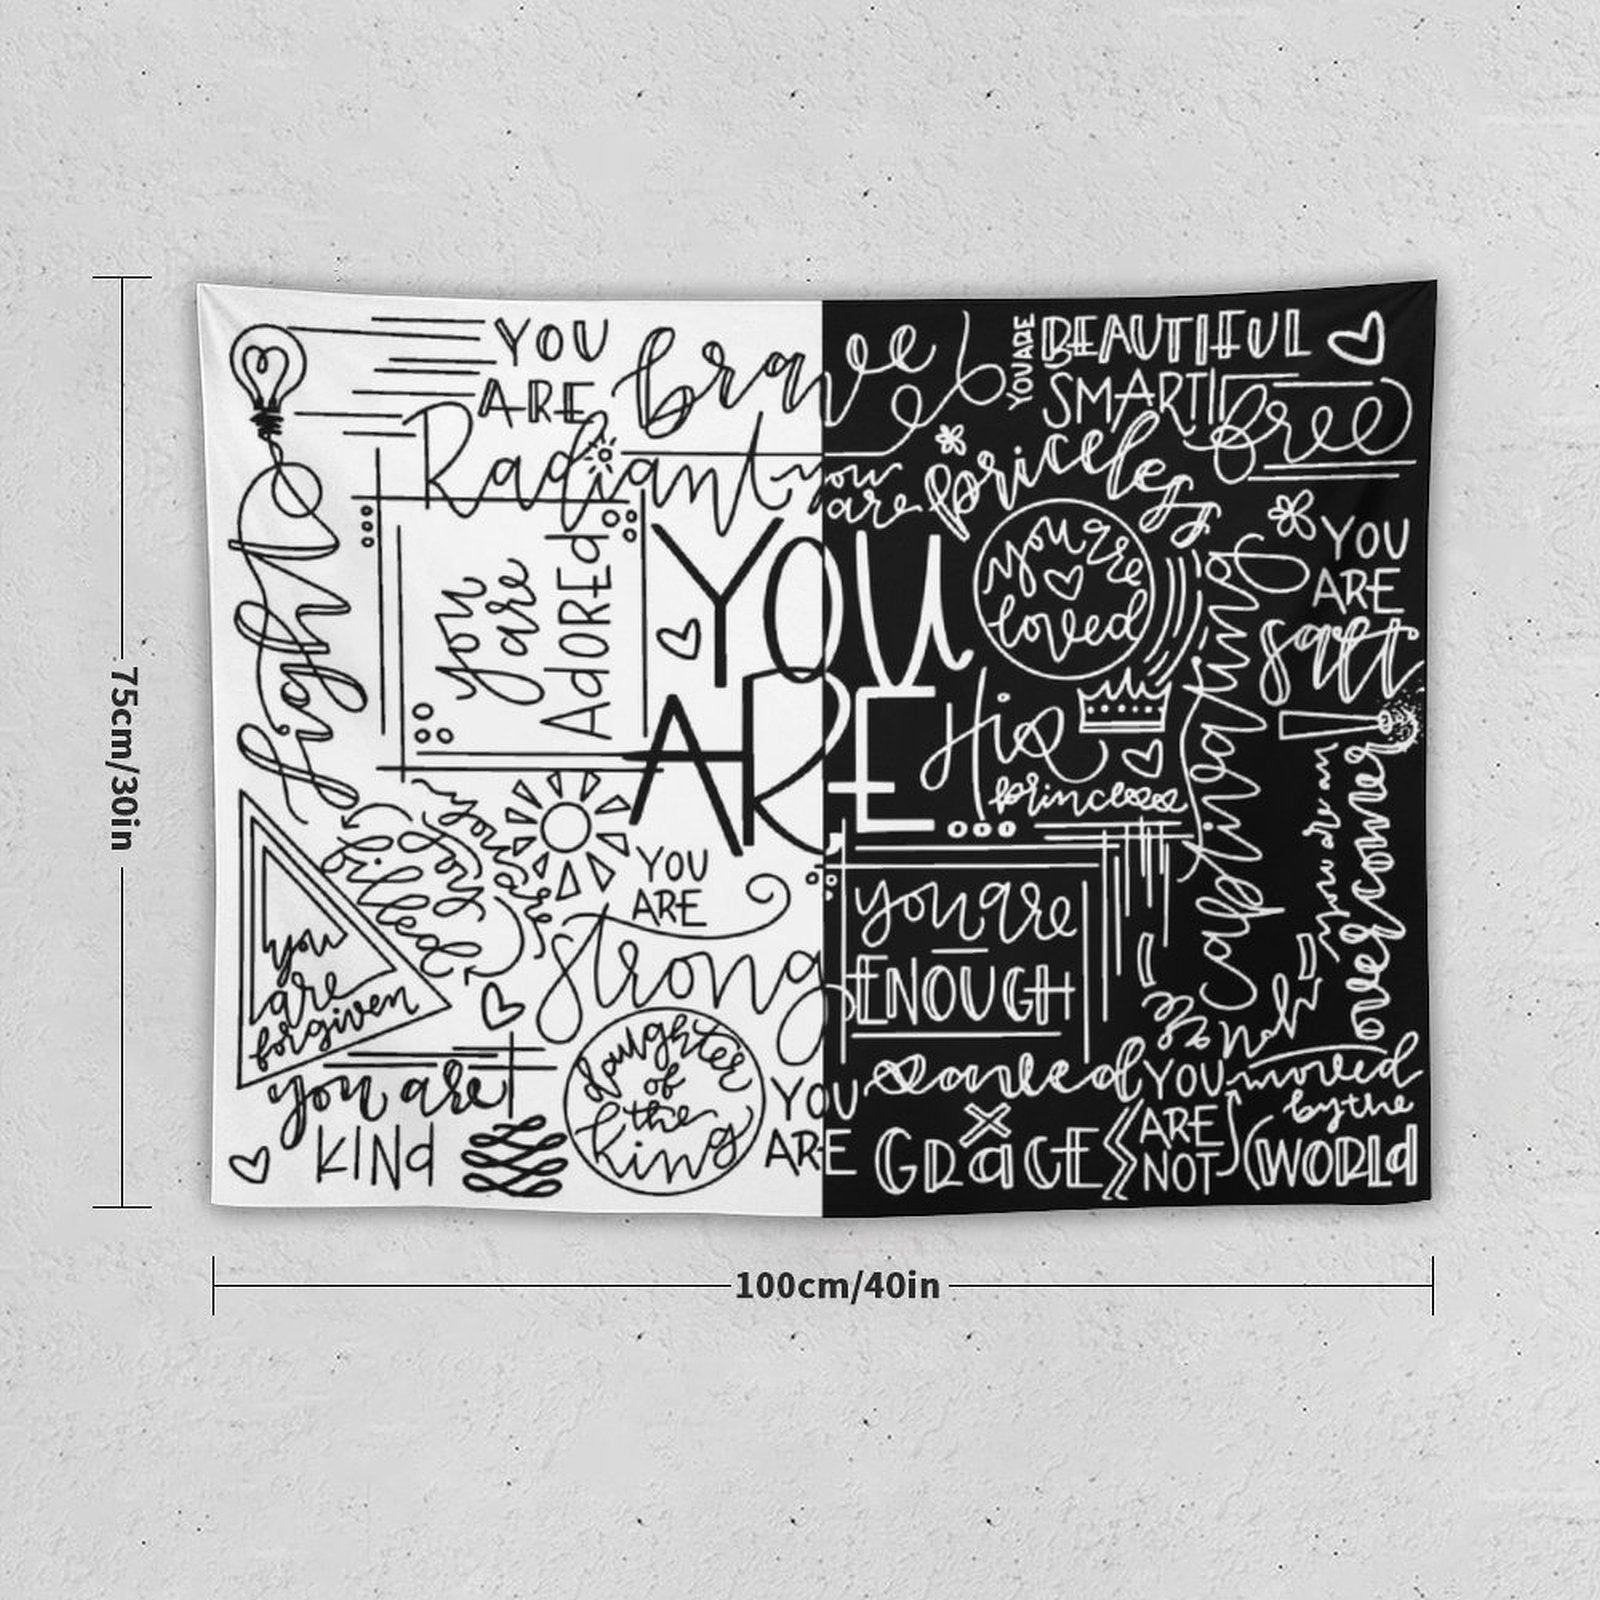 YOU
ARE
brave
YOU ARE
BEAUTIFUL
SMART
free
Radiant
you
are
priceless
light
you
are
ADOREd
YOU
ARE
you are
loved
YOU
ARE
salt
His
princess
captivating
you are an
overcomer
you are
filled
joy
YOU
ARE
strong
you are
ENOUGH
you
are
forgiven
you are
KINd
daughter
of
the
king
YOU
ARE
covered
x
GRaCE
YOU
ARE
NOT
moved
by the
WORLd
75cm/30in
100cm/40in